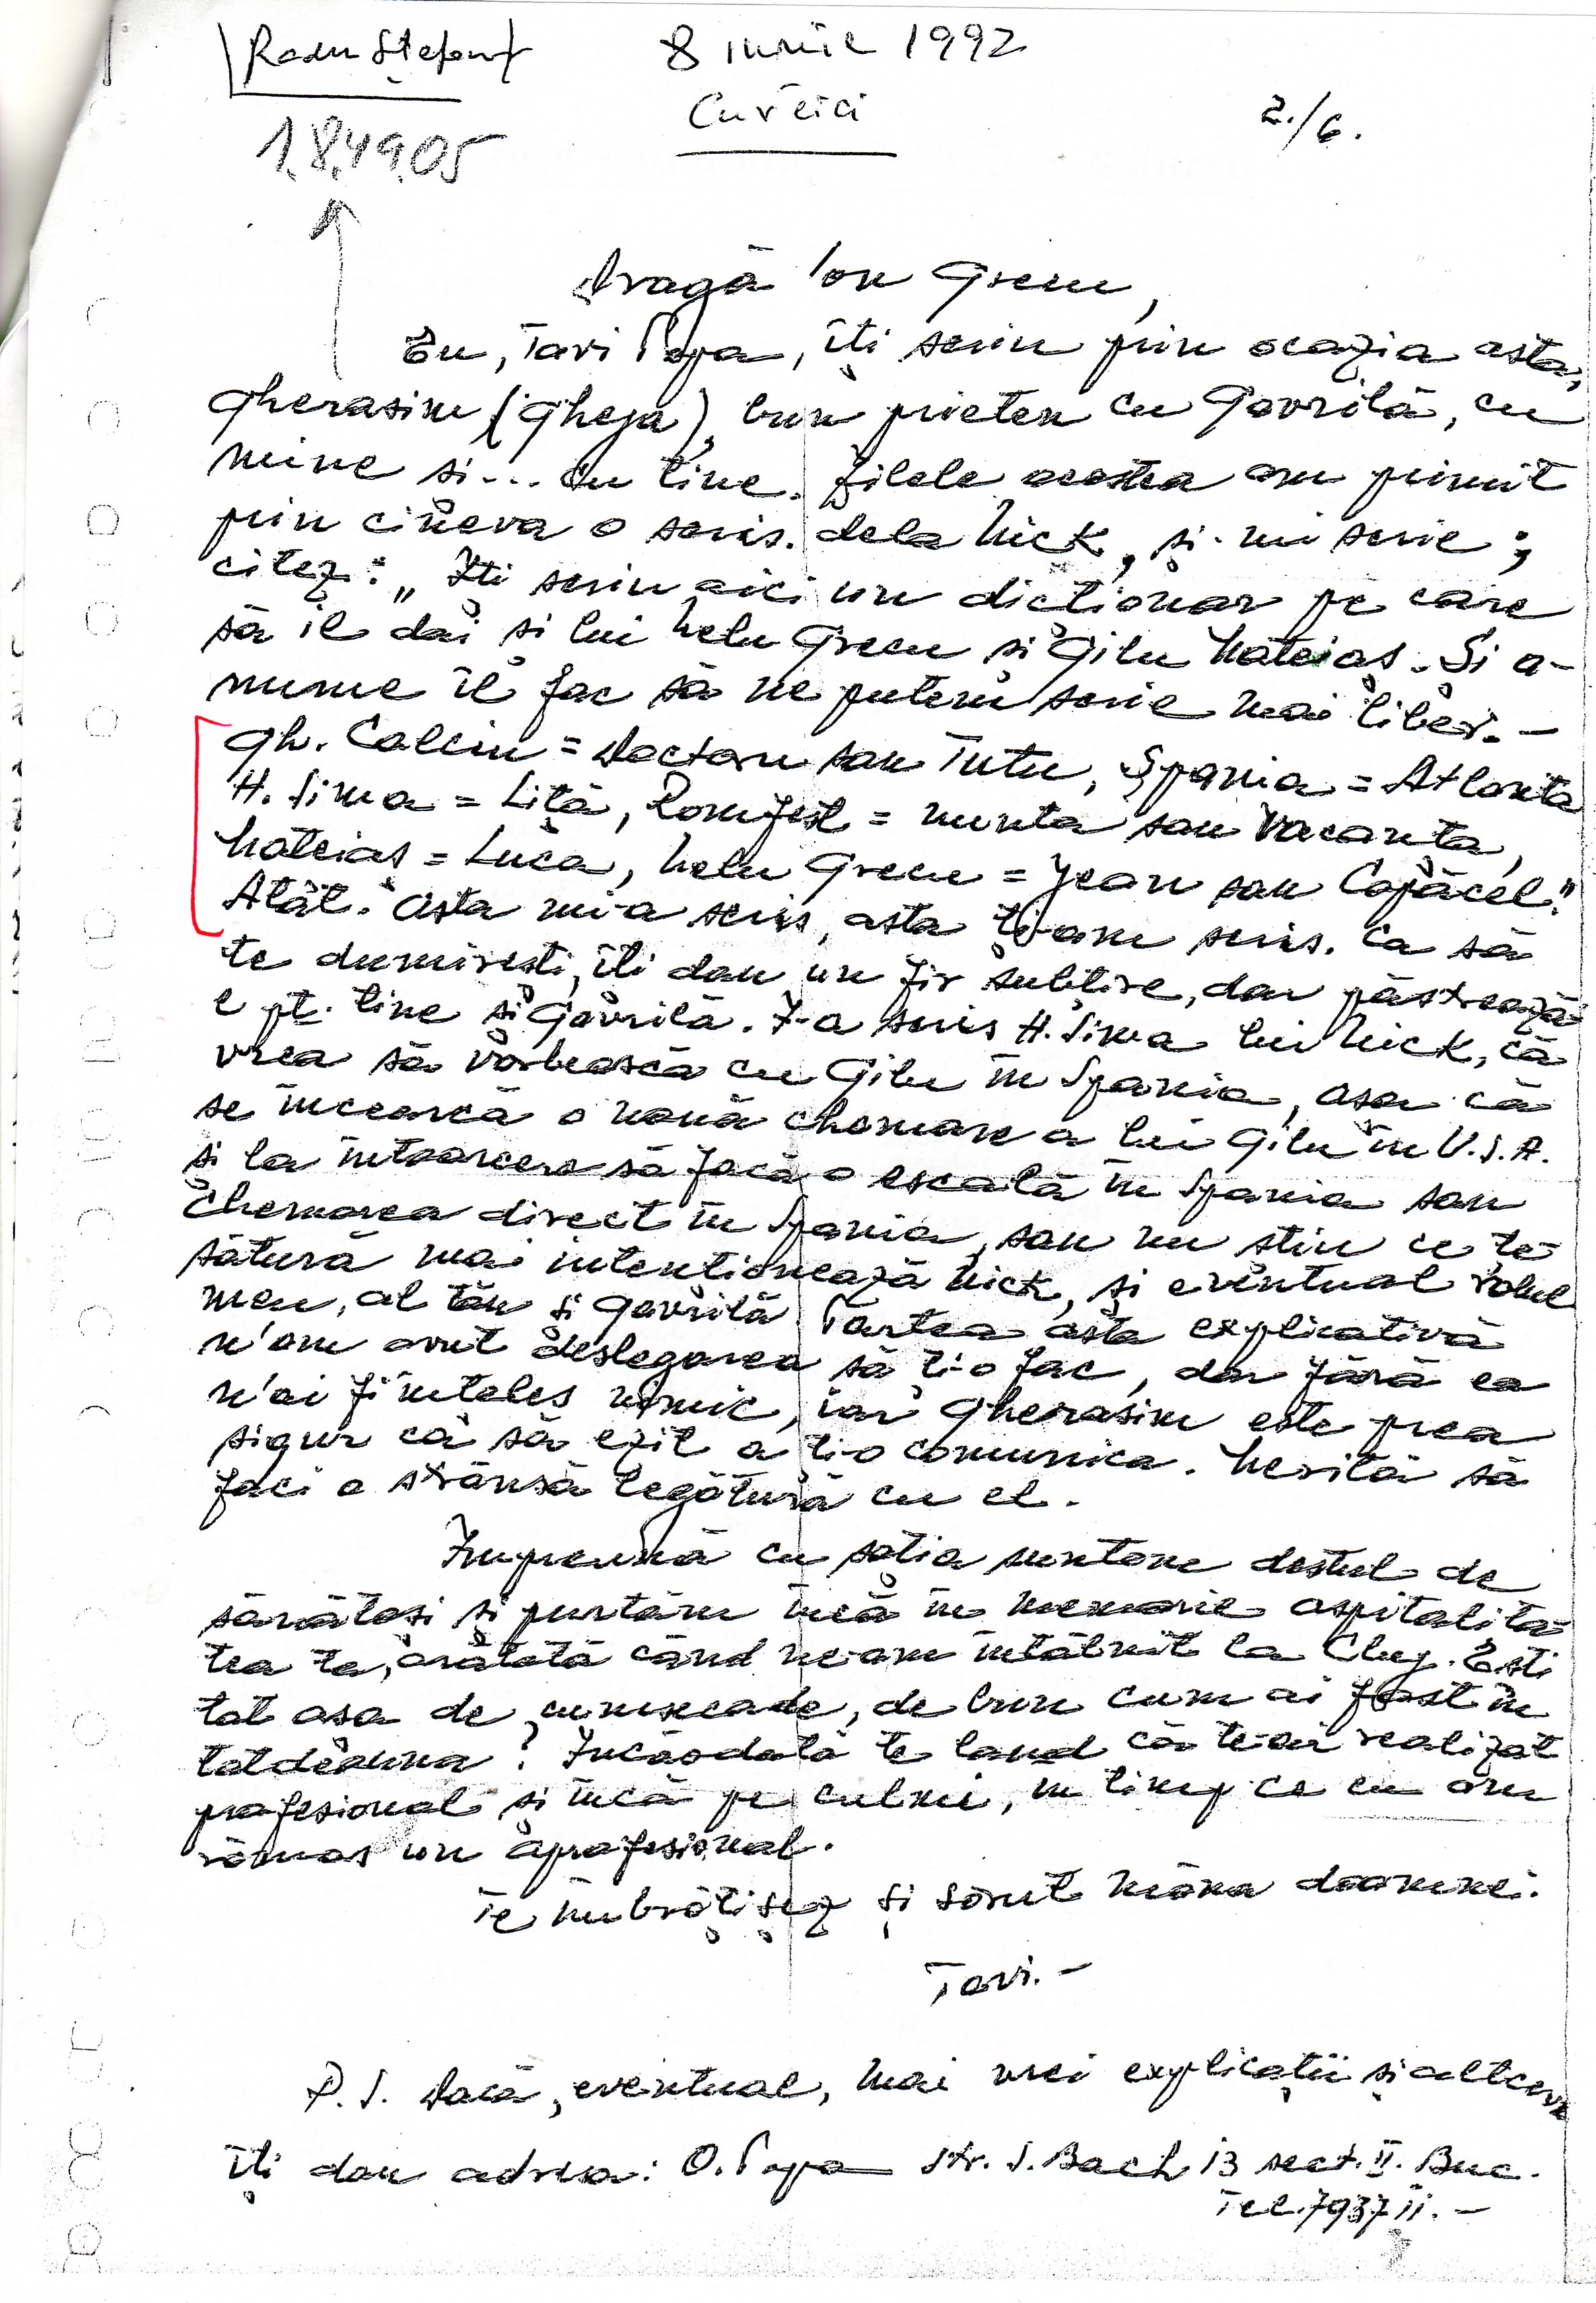 Radu Ștefan
8 iunie 1992
2./6.
1.8.49.05
Dragă Ion Grecu,
Eu, Tavi Popa, îți scriu prin ocazia asta,
Gherasim (Gheja), bun prieten cu Gavrilă, cu
mine si... cu tine. Zilele acestea am primit
prin cineva o scris. dela Nick, și-mi scrie;
citez: „Iti scriu aici un dicționar pe care
să il dai și lui Nelu Grecu și Gilu Mateiaș. Și a-
nume il fac să ne putem scrie mai liber. -
Gh. Calciu = Doctoru sau Tutu, Spania = Atlanta
H. Sima = Liță, Romfest = nunta sau Vacanta,
Mateiaș = Luca, Nelu Grecu = Jean sau Copăcel."
Atât. Asta mi-a scris, asta ți-am scris. Ca să
te dumirești, îți dau un fir subțire, dar păstrează
e pt. tine și Gavrilă. I-a scris H. Sima lui Nick, că
vrea să vorbească cu Gilu în Spania, așa că
se încearcă o nouă chemare a lui Gilu în U.S.A.
și la întoarcere să facă o escală în Spania sau
chemarea direct în Spania, sau nu știu ce țe-
sătură mai intenționează Nick, și eventual rolul
meu, al tău și Gavrilă. Partea asta explicativă
n'am avut deslegarea să ți-o fac, dar fără ea
n'ai fi înteles nimic, iar Gherasim este prea
sigur ca să ezit a ți-o comunica. Merită să
faci o strânsă legătură cu el.
Impreună cu soția suntem destul de
sănătoși și purtăm încă în memorie ospitalita-
tea ta, arătată când ne-am întâlnit la Cluj. Ești
tot așa de cumsecade, de bun cum ai fost în-
totdeauna? Incăodată te laud că te-ai realizat
profesional și încă pe culmi, în timp ce eu am
rămas un aprofesional.
Te îmbrățișez și sărut mâna doamnei.
Tavi. -
P.S. Dacă, eventual, mai vrei explicații și altceva
îți dau adresa: O. Popa Str. S. Bach 13 sect. II. Buc.
Tel. 7937 11. -